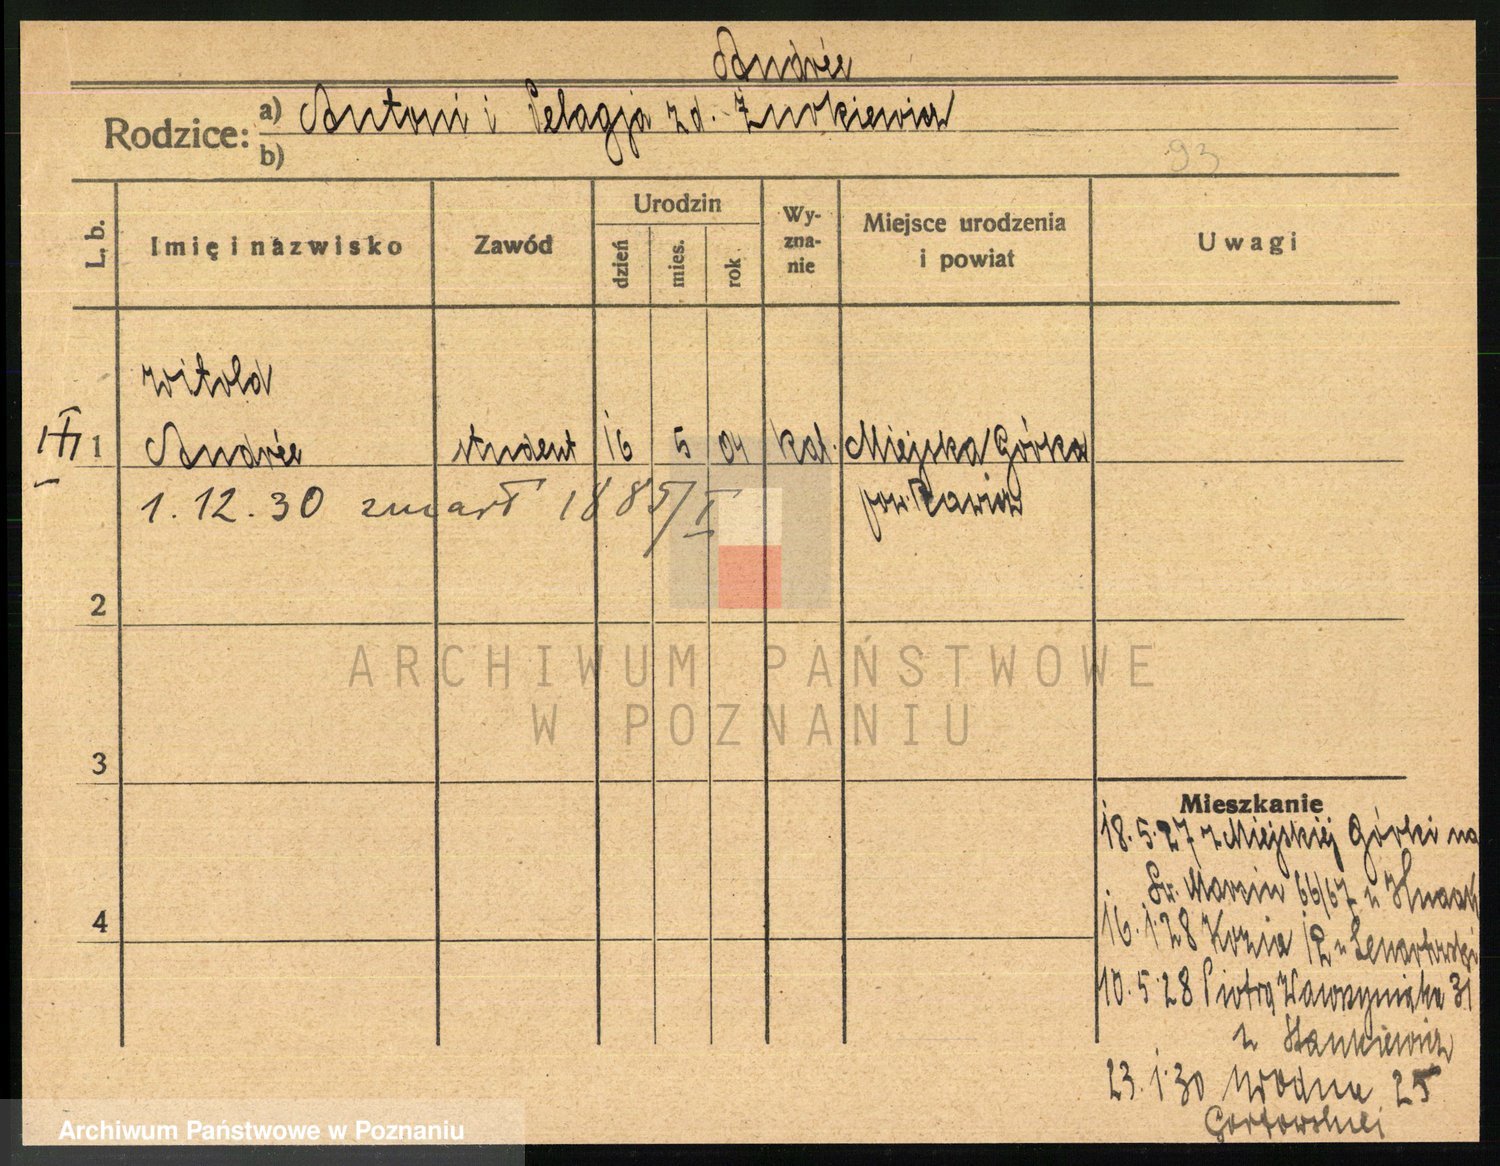 Andrée
Rodzice: a) Antoni i Pelagja zd. Żurkiewicz
b)
93
L. b.
Imię i nazwisko
Zawód
Urodzin
dzień
mies.
rok
Wy-
zna-
nie
Miejsce urodzenia
i powiat
Uwagi
Witold
III 1 Andrée student 16 5 04 kat. Miejska Górka
1.12.30 zmarł 1885/I pow. Rawicz
2
ARCHIWUM PAŃSTWOWE
W POZNANIU
3
Mieszkanie
18.5.27 z Miejskiej Górki na
Św. Marcin 66/67 u
4
16.1.28 Kozia 12 u Lenartowski
10.5.28 Piotra Wawrzyniaka 31
u Stankiewicz
23.1.30 Wodna 25
Archiwum Państwowe w Poznaniu